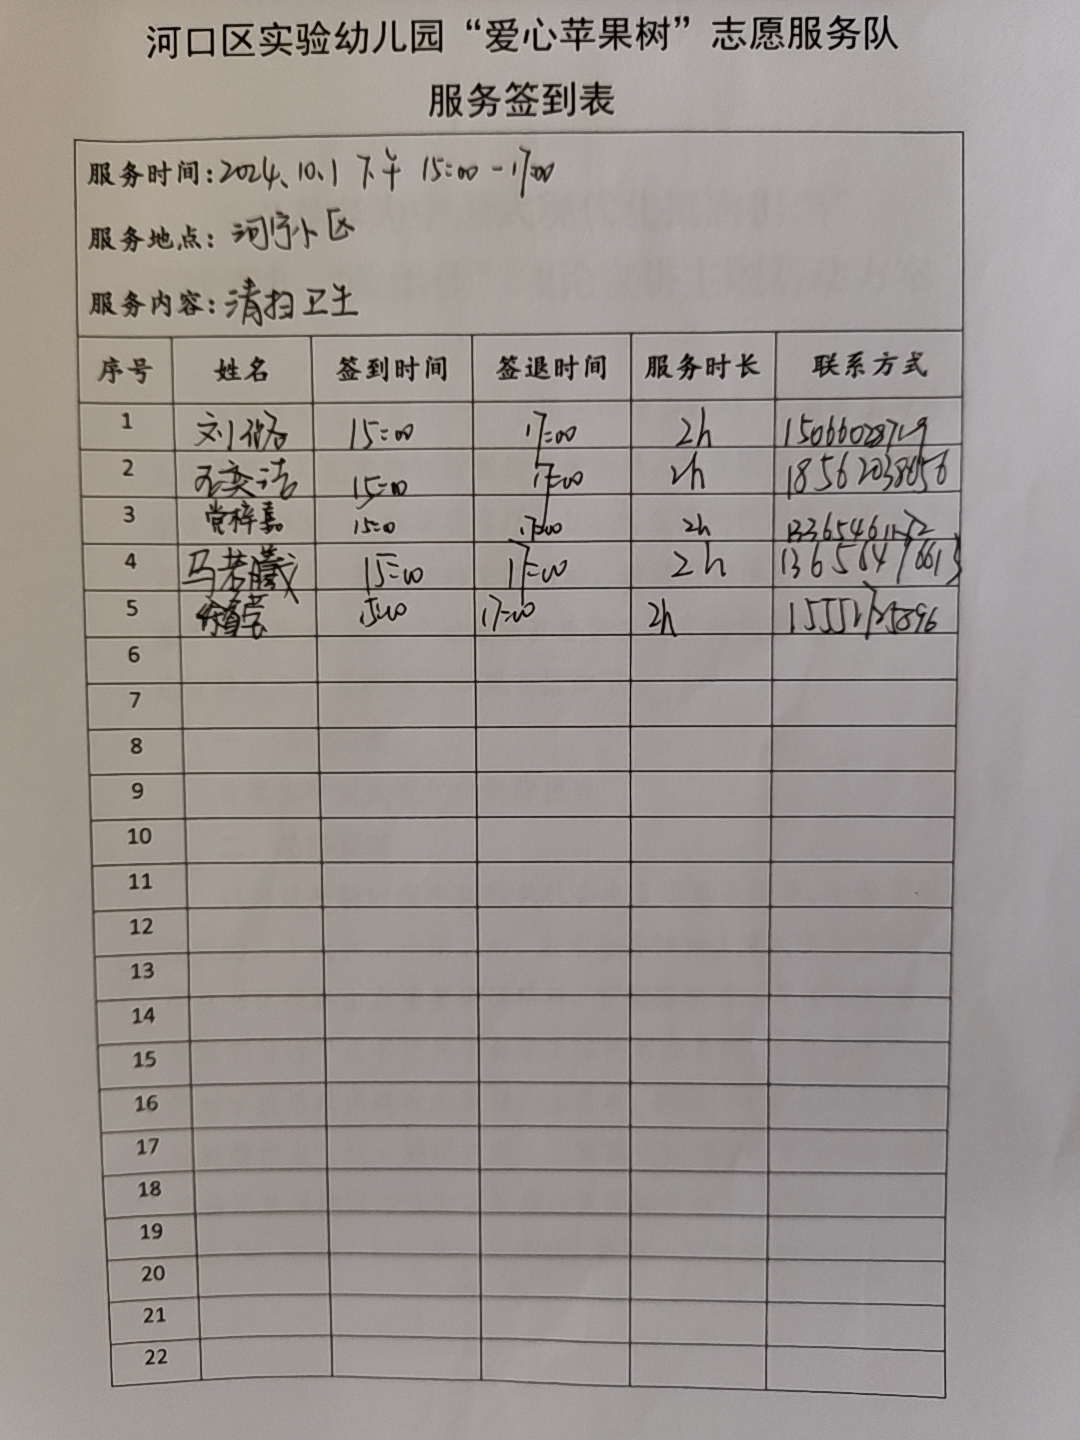 河口区实验幼儿园“爱心苹果树”志愿服务队
服务签到表
服务时间:2024.10.1 下午 15:00-17:00
服务地点: 河宁小区
服务内容:清扫卫生
序号 姓名 签到时间 签退时间 服务时长 联系方式
1 刘 15:00 17:00 2h
2 15:00 17:00 2h 18562038656
3 常梓嘉 15:00 17:00 2h
4 马若曦 15:00 17:00 2h 13656476613
5 15:00 17:00 2h
6
7
8
9
10
11
12
13
14
15
16
17
18
19
20
21
22